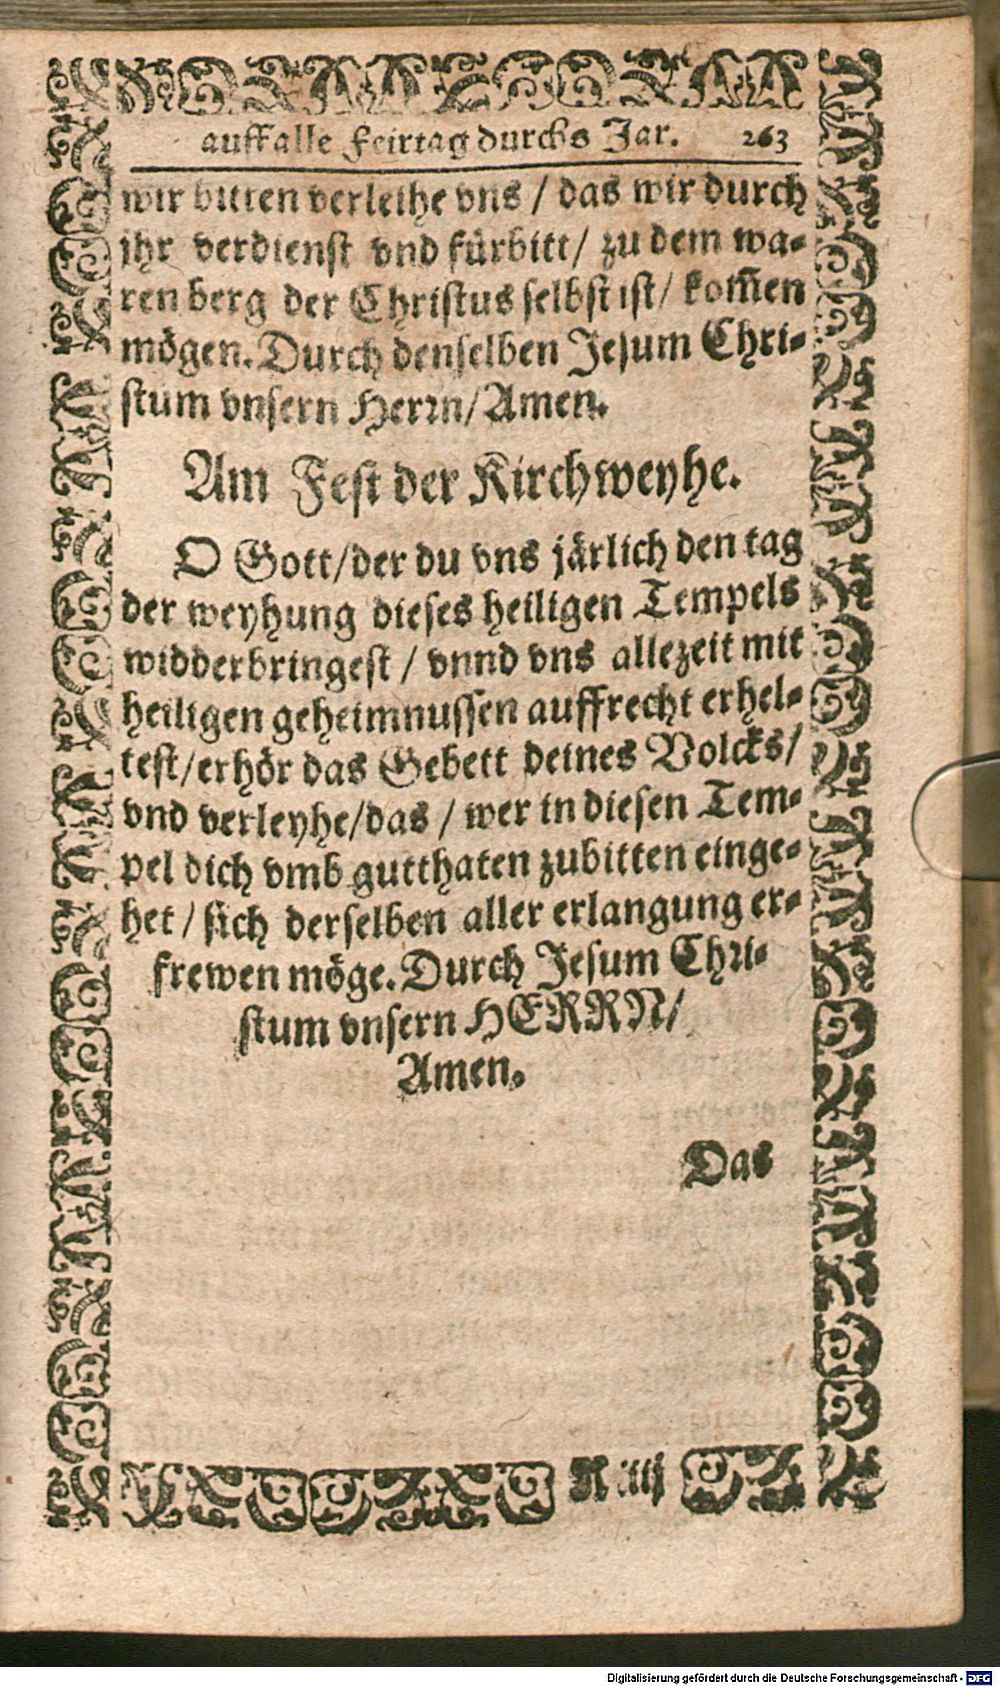 auff alle Feirtag durchs Jar. 263
wir bitten verleihe vns / das wir durch
jhr verdienst vnd fürbitt / zu dem wa-
ren berg der Christus selbst ist / kom̃en
mögen. Durch denselben Jesum Chri-
stum vnsern Herrn / Amen.
Am Fest der Kirchweyhe.
O Gott / der du vns järlich den tag
der weyhung dieses heiligen Tempels
widderbringest / vnnd vns allezeit mit
heiligen geheimnussen auffrecht erhel-
test / erhör das Gebett deines Volcks /
vnd verleyhe / das / wer in diesen Tem-
pel dich vmb gutthaten zubitten einge-
het / sich derselben aller erlangung er-
frewen möge. Durch Jesum Chri-
stum vnsern HERRN /
Amen.
Das
Digitalisierung gefördert durch die Deutsche Forschungsgemeinschaft - DFG